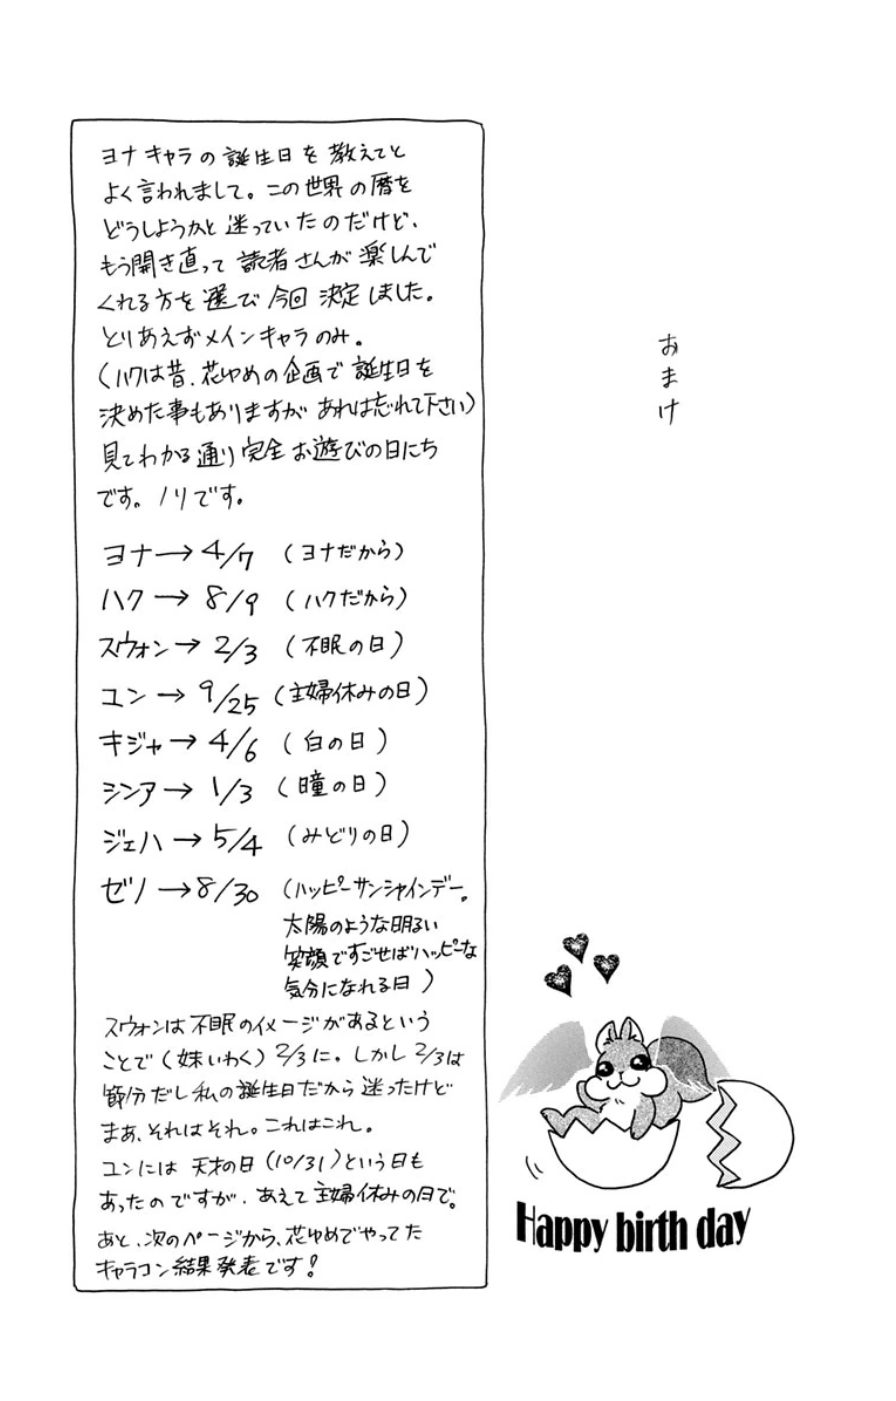 おまけ
ヨナキャラの誕生日を教えてと
よく言われまして。この世界の暦を
どうしようかと迷っていたのだけど、
もう開き直って読者さんが楽しんで
くれる方を選び今回決定しました。
とりあえずメインキャラのみ。
(ハクは昔、花ゆめの企画で誕生日を
決めた事もありますがあれは忘れて下さい)
見てわかる通り完全お遊びの日にち
です。ノリです。
ヨナ→4/7 (ヨナだから)
ハク→8/9 (ハクだから)
スウォン→2/3 (不眠の日)
ユン→9/25 (主婦休みの日)
キジャ→4/6 (白の日)
シンア→1/3 (瞳の日)
ジェハ→5/4 (みどりの日)
ゼノ→8/30 (ハッピーサンシャインデー。
太陽のような明るい
笑顔ですごせばハッピーな
気分になれる日)
スウォンは不眠のイメージがあるという
ことで(妹いわく)2/3に。しかし2/3は
節分だし私の誕生日だから迷ったけど
まあ、それはそれ。これはこれ。
ユンには天才の日(10/31)という日も
あったのですが、あえて主婦休みの日で。
あと、次のページから、花ゆめでやってた
キャラコン結果発表です!
Happy birth day